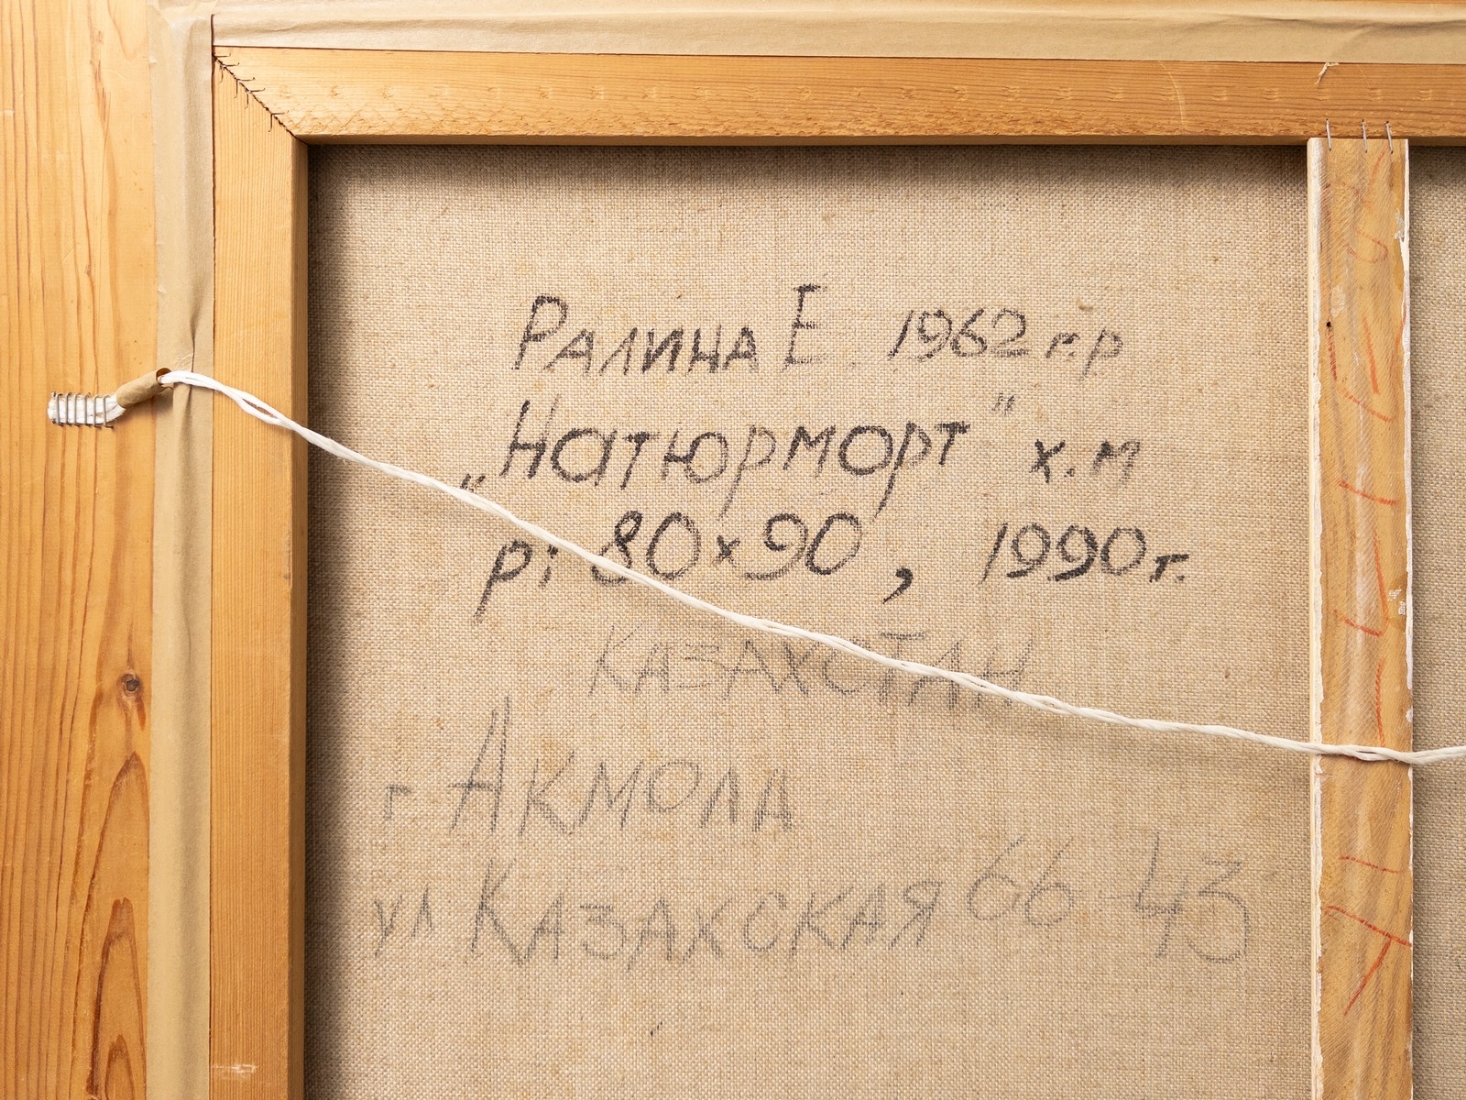 Ралина Е. 1962 г.р
„Натюрморт" х.м
р: 80x90, 1990г.
КАЗАХСТАН
г Акмола
ул Казахская 66-43